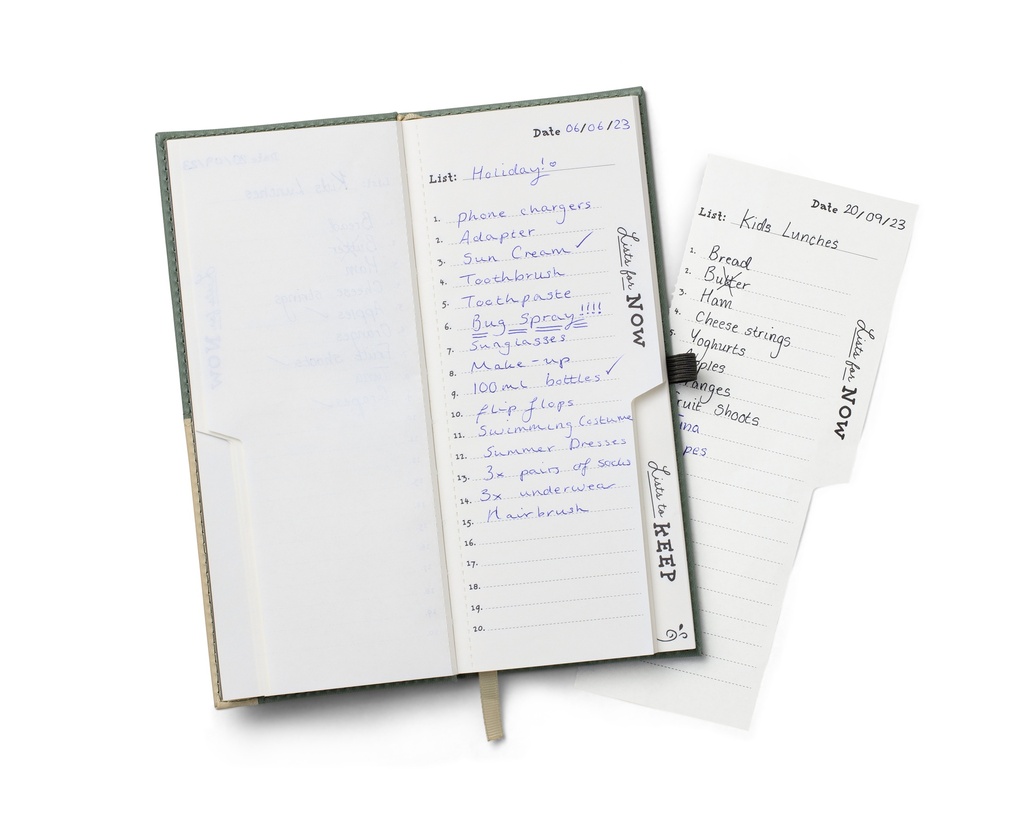 Date 06/06/23
List: Holiday!
1. phone chargers
2. Adapter
3. Sun Cream ✓
4. Toothbrush
5. Toothpaste
6. Bug Spray!!!!
7. Sunglasses
8. Make-up
9. 100ml bottles ✓
10. flip flops
11. Swimming Costume
12. Summer Dresses
13. 3x pairs of socks
14. 3x underwear
15. Hairbrush
16.
17.
18.
19.
20.
Lists for NOW
Lists to KEEP
Date 20/09/23
List: Kids Lunches
1. Bread
2. Butter
3. Ham
4. Cheese strings
5. Yoghurts
ples
anges
ruit Shoots
una
pes
Lists for NOW